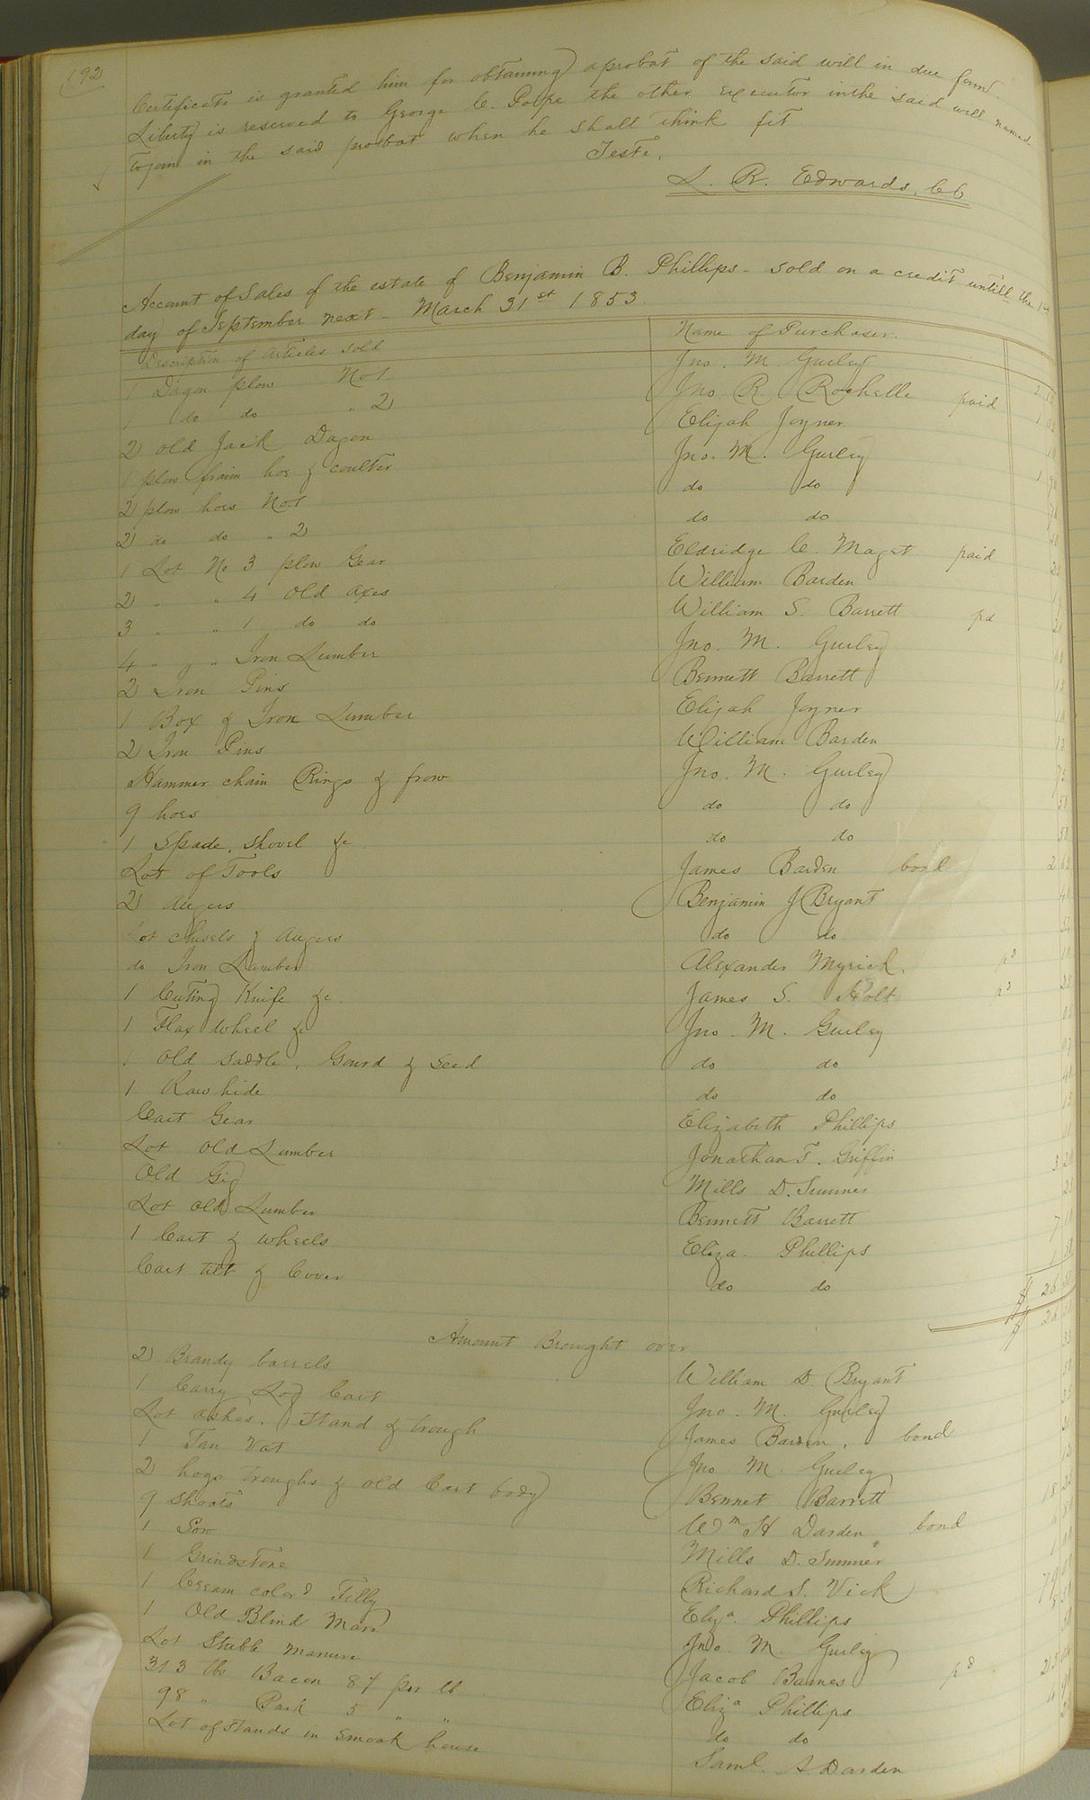 192
Certificate is granted him for obtaining a probat of the said will in due form.
Liberty is reserved to George C. Pope the other executor in the said will named
to join in the said probat when he shall think fit
Teste,
L. R. Edwards, Cc
Account of Sales of the estate of Benjamin B. Phillips - sold on a credit untill the 1st
day of September next - March 31st 1853
Description of articles sold Name of Purchaser.
1 Dagon plow No 1 Jno. M. Gurley
1 do do " 2 Jno R. Rochelle paid
2 old Jack Dagon Elijah Joyner
1 plow fraim hoe & coulter Jno. M. Gurley
2 plow hoes No 1 do do
2 do do " 2 do do
1 Lot No 3 plow Gear Eldridge C. Maget paid
2 " " 4 old axes William Barden
3 " " 1 do do William S. Barrett pd
4 " " " Iron Lumber Jno. M. Gurley
2 Iron Pins Bennett Barrett
1 Box & Iron Lumber Elijah Joyner
2 Iron Pins William Barden
Hammer chain Rings & frow Jno. M. Gurley
9 hoes do do
1 Spade, shovel &c do do
Lot of Tools James Barden bond
2 augers Benjamin J Bryant
Lot chisels & augers do do
do Iron Lumber Alexander Myrick. pd
1 Cuting Knife &c. James S. Holt pd
1 Flax wheel &c Jno. M. Gurley
1 old saddle, Gourd & seed do do
1 Raw hide do do
Cart Gear Elizabeth Phillips
Lot old Lumber Jonathan T. Griffin
Old Gig Mills D. Sumner
Lot old Lumber Bennett Barrett
1 Cart & wheels Eliza. Phillips
Cart tilt & Cover do do
Amount Brought over
2 Brandy barrels William D Bryant
1 Carry Log Cart Jno. M. Gurley
Lot ashes, stand & trough James Barden, bond
1 Tan Vat Jno M. Gurley
2 hogs troughs & old Cart body Bennet Barrett
9 Shoats Wm H Darden bond
1 Sow Mills D. Sumner
1 Grindstone Richard S. Vick
1 Cream colord Filly Eliza Phillips
1 Old Blind Mare Jno. M. Gurley
Lot Stable manure Jacob Barnes pd
313 lbs Bacon 8¼ per lb Eliza Phillips
98 " Pork 5 " " do do
Lot of stands in smoak house Saml. A Darden